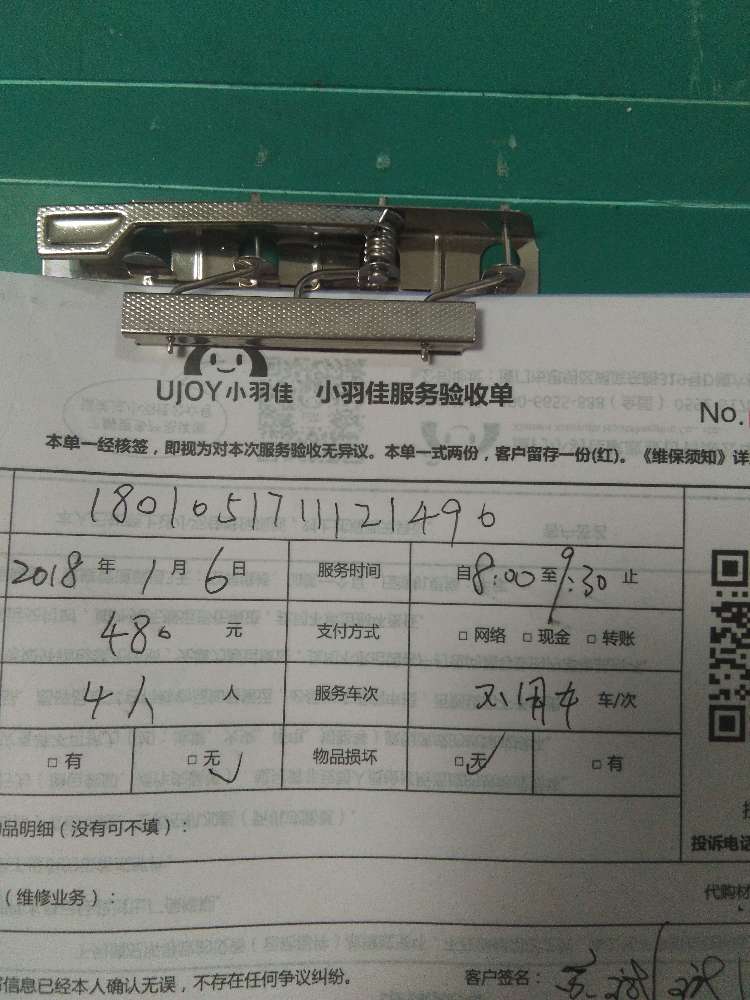 UJOY小羽佳 小羽佳服务验收单
No.
本单一经核签，即视为对本次服务验收无异议。本单一式两份，客户留存一份(红)。《维保须知》详
1801051711121496
2018年1月6日 服务时间 自8:00至9:30止
480元 支付方式 □ 网络 □ 现金 □ 转账
4人 人 服务车次 不用车 车/次
□ 有 □ 无 物品损坏 □ 无 □ 有
品明细（没有可不填）：
投诉电话
（维修业务）：
代购材
信息已经本人确认无误，不存在任何争议纠纷。 客户签名：